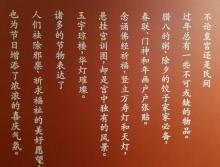 不论皇宫还是民间
过年总有一些不可或缺的物品。
腊八的粥，除夕的饺子家家必备，
春联、门神和年画户户张贴。
念诵佛经祈福，竖立万寿灯和天灯，
悬挂宫训图，却是宫中独有的风景。
玉宇琼楼，华灯璀璨。
诸多的节物表达了
人们祛除邪祟、祈求福祉的美好愿望，
也为节日增添了浓浓的喜庆气氛。